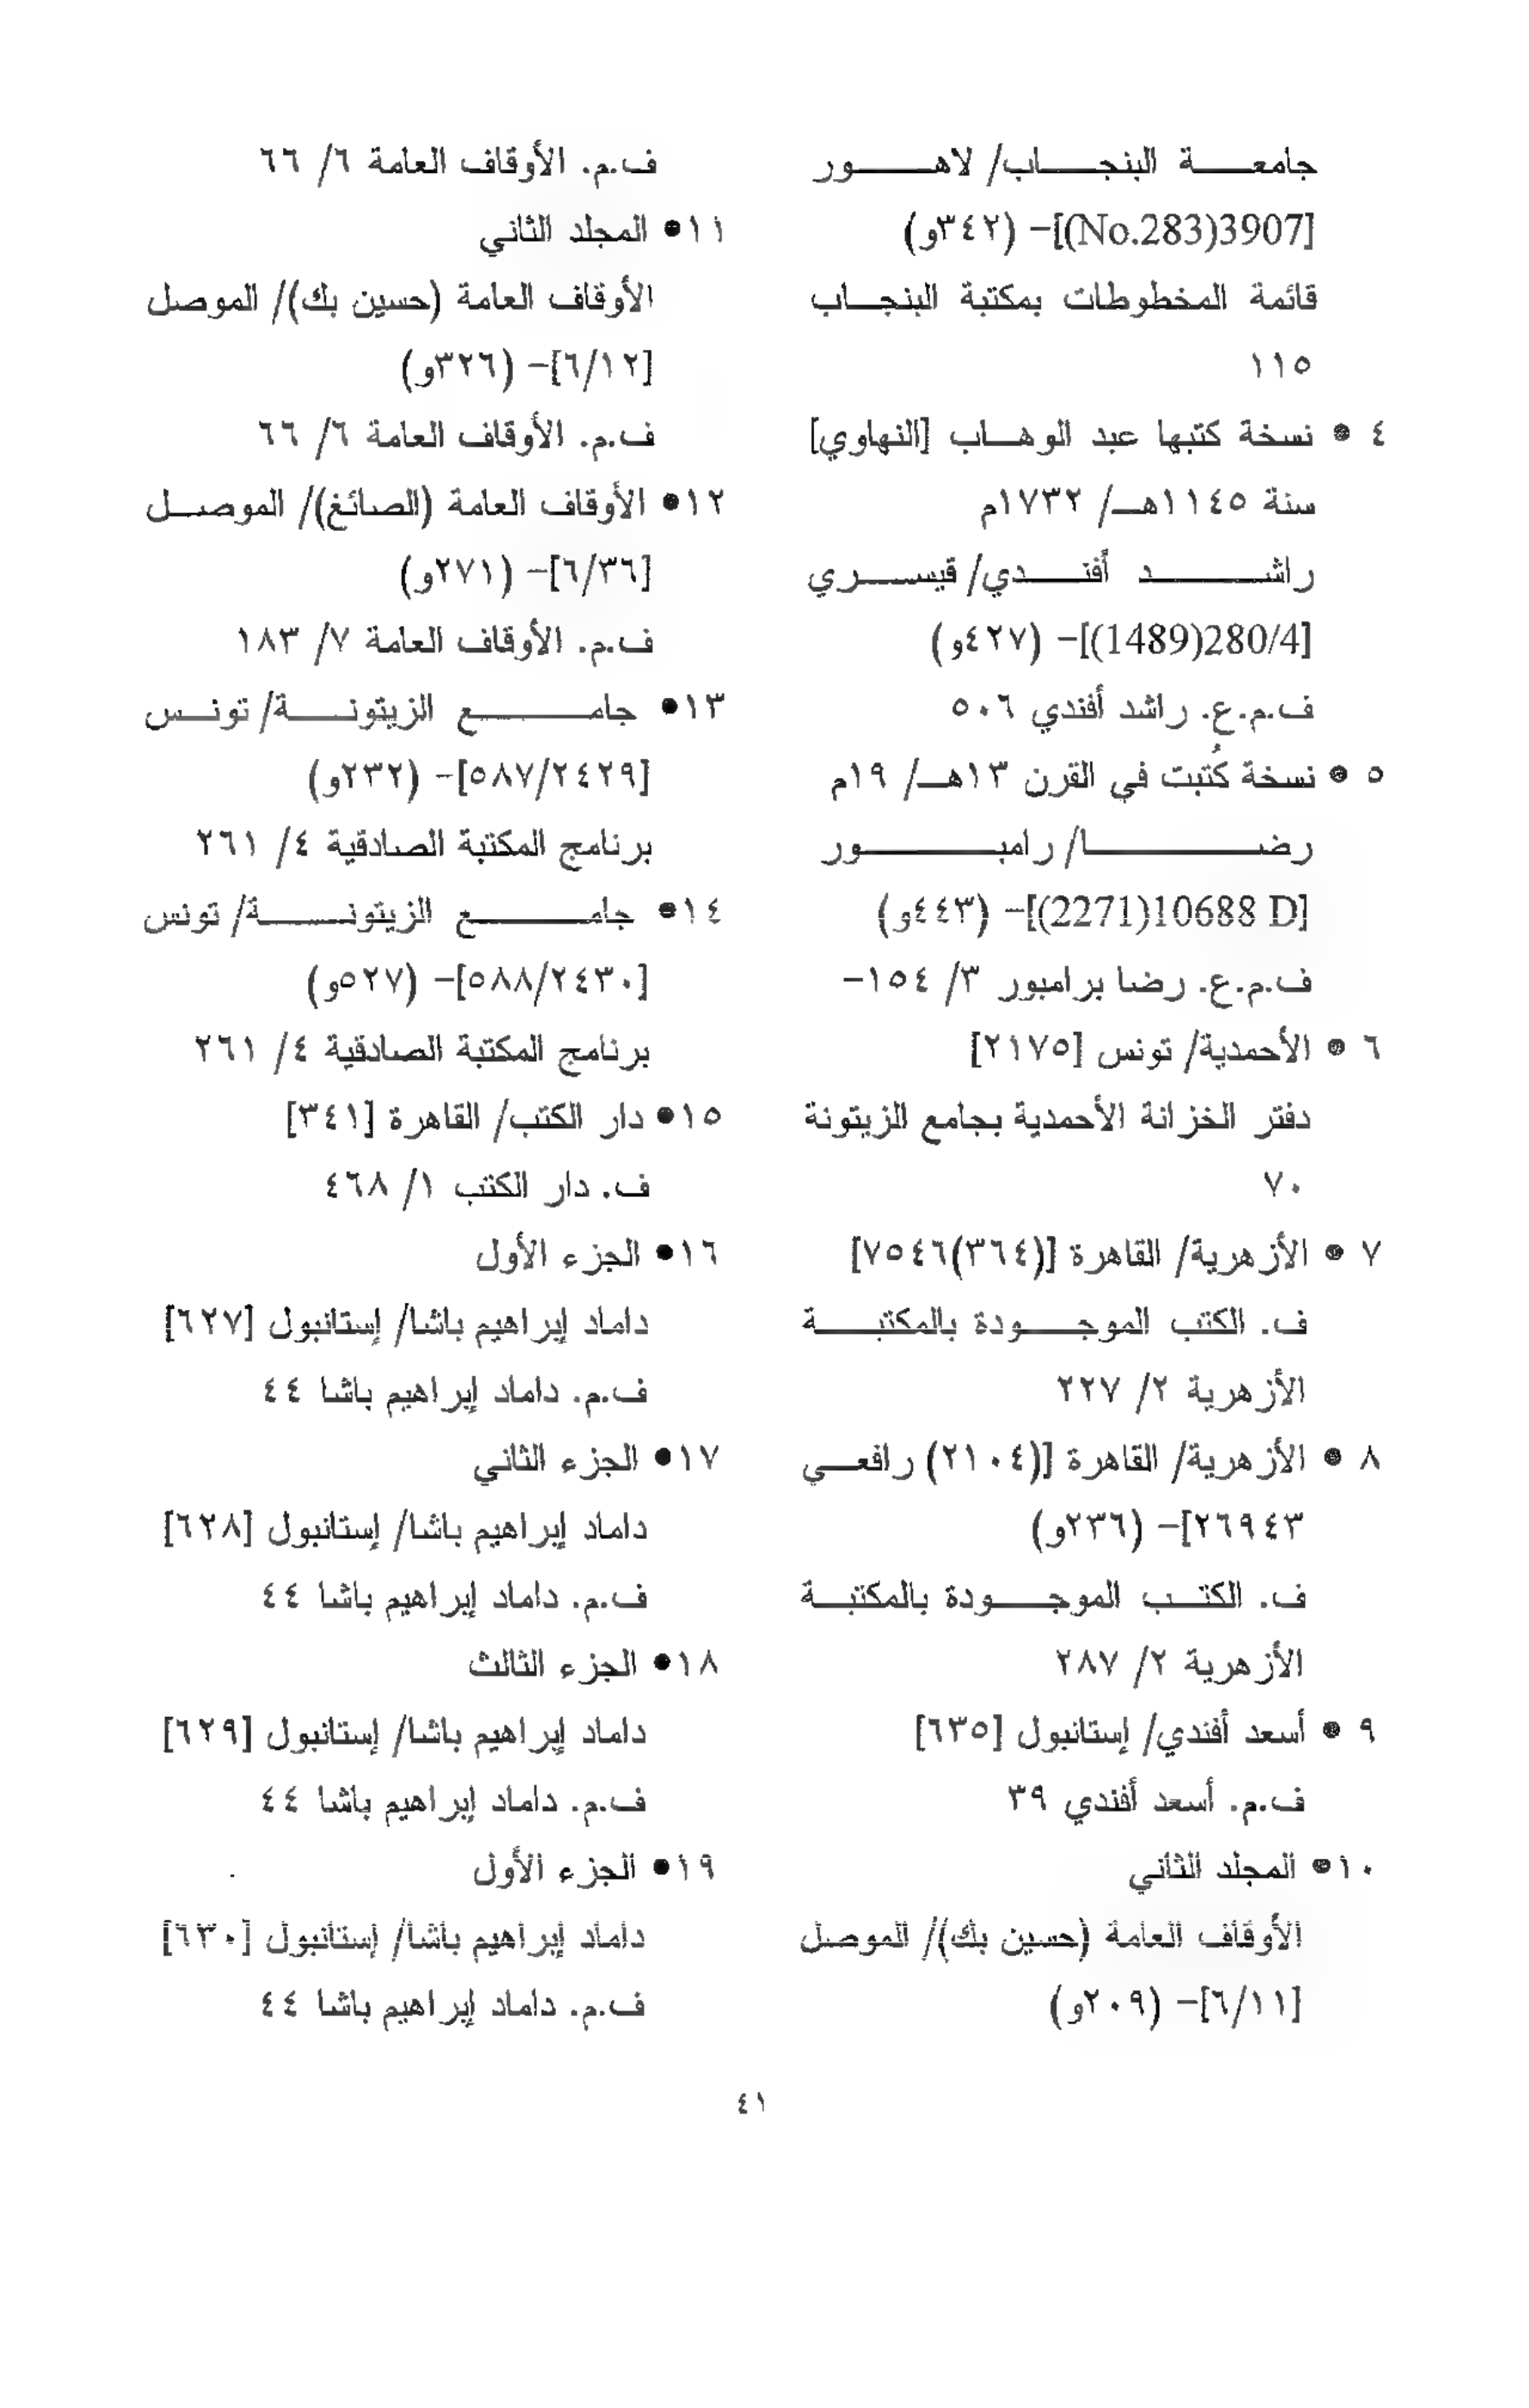 جامعة البنجاب/ لاهور
[3907(No.283)]– (٣٤٢و)
قائمة المخطوطات بمكتبة البنجاب
١١٥
٤ • نسخة كتبها عبد الوهاب [النهاوي]
سنة ١١٤٥هـ/ ١٧٣٢م
راشد أفندي/ قيسري
[280/4(1489)]– (٤٢٧و)
ف.م.ع. راشد أفندي ٥٠٦
٥ • نسخة كُتبت في القرن ١٣هـ/ ١٩م
رضا/ رامبور
[10688 D(2271)]– (٤٤٣و)
ف.م.ع. رضا برامبور ٣/ ١٥٤–
٦ • الأحمدية/ تونس [٢١٧٥]
دفتر الخزانة الأحمدية بجامع الزيتونة
٧٠
٧ • الأزهرية/ القاهرة [(٣٦٤)٧٥٤٦]
ف. الكتب الموجودة بالمكتبة
الأزهرية ٢/ ٢٢٧
٨ • الأزهرية/ القاهرة [(٢١٠٤) رافعي
٢٦٩٤٣]– (٢٣٦و)
ف. الكتب الموجودة بالمكتبة
الأزهرية ٢/ ٢٨٧
٩ • أسعد أفندي/ إستانبول [٦٣٥]
ف.م. أسعد أفندي ٣٩
١٠• المجلد الثاني
الأوقاف العامة (حسين بك)/ الموصل
[٦/١١]– (٢٠٩و)
ف.م. الأوقاف العامة ٦/ ٦٦
١١• المجلد الثاني
الأوقاف العامة (حسين بك)/ الموصل
[٦/١٢]– (٣٢٦و)
ف.م. الأوقاف العامة ٦/ ٦٦
١٢• الأوقاف العامة (الصائغ)/ الموصل
[٦/٣٦]– (٢٧١و)
ف.م. الأوقاف العامة ٧/ ١٨٣
١٣• جامع الزيتونة/ تونس
[٥٨٧/٢٤٢٩]– (٢٣٢و)
برنامج المكتبة الصادقية ٤/ ٢٦١
١٤• جامع الزيتونة/ تونس
[٥٨٨/٢٤٣٠]– (٥٢٧و)
برنامج المكتبة الصادقية ٤/ ٢٦١
١٥• دار الكتب/ القاهرة [٣٤١]
ف. دار الكتب ١/ ٤٦٨
١٦• الجزء الأول
داماد إبراهيم باشا/ إستانبول [٦٢٧]
ف.م. داماد إبراهيم باشا ٤٤
١٧• الجزء الثاني
داماد إبراهيم باشا/ إستانبول [٦٢٨]
ف.م. داماد إبراهيم باشا ٤٤
١٨• الجزء الثالث
داماد إبراهيم باشا/ إستانبول [٦٢٩]
ف.م. داماد إبراهيم باشا ٤٤
١٩• الجزء الأول
داماد إبراهيم باشا/ إستانبول [٦٣٠]
ف.م. داماد إبراهيم باشا ٤٤
٤١